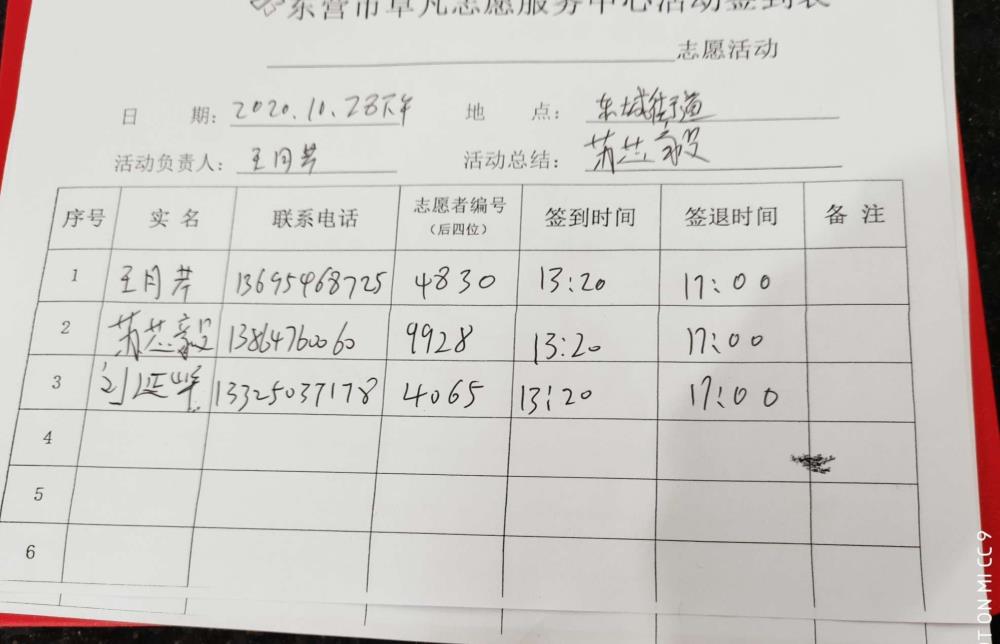 东营市草凡志愿服务中心活动签到表
志愿活动
日 期: 2020.10.28下午 地 点: 东城街道
活动负责人: 王月芹 活动总结: 苏芯毅
序号 实 名 联系电话 志愿者编号 签到时间 签退时间 备 注
(后四位)
1 王月芹 13695468725 4830 13:20 17:00
2 苏芯毅 13864760060 9928 13:20 17:00
3 刘延华 13325037178 4065 13:20 17:00
4
5
6